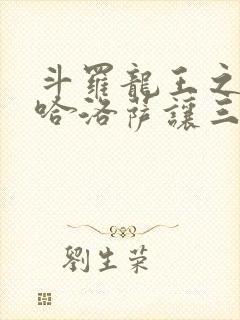 斗羅龍王之
哈洛薩讓三
劉生荣